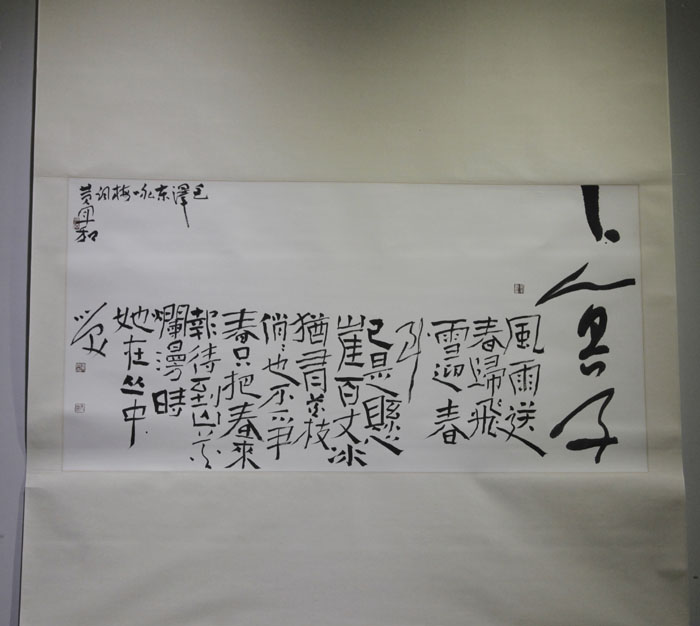 卜算子
風雨送
春歸飛
雪迎春
到
已是懸
崖百丈冰
猶有花枝
俏々也不爭
春只把春來
報待到山花
爛漫時
她在丛中
笑
毛澤東咏梅詞